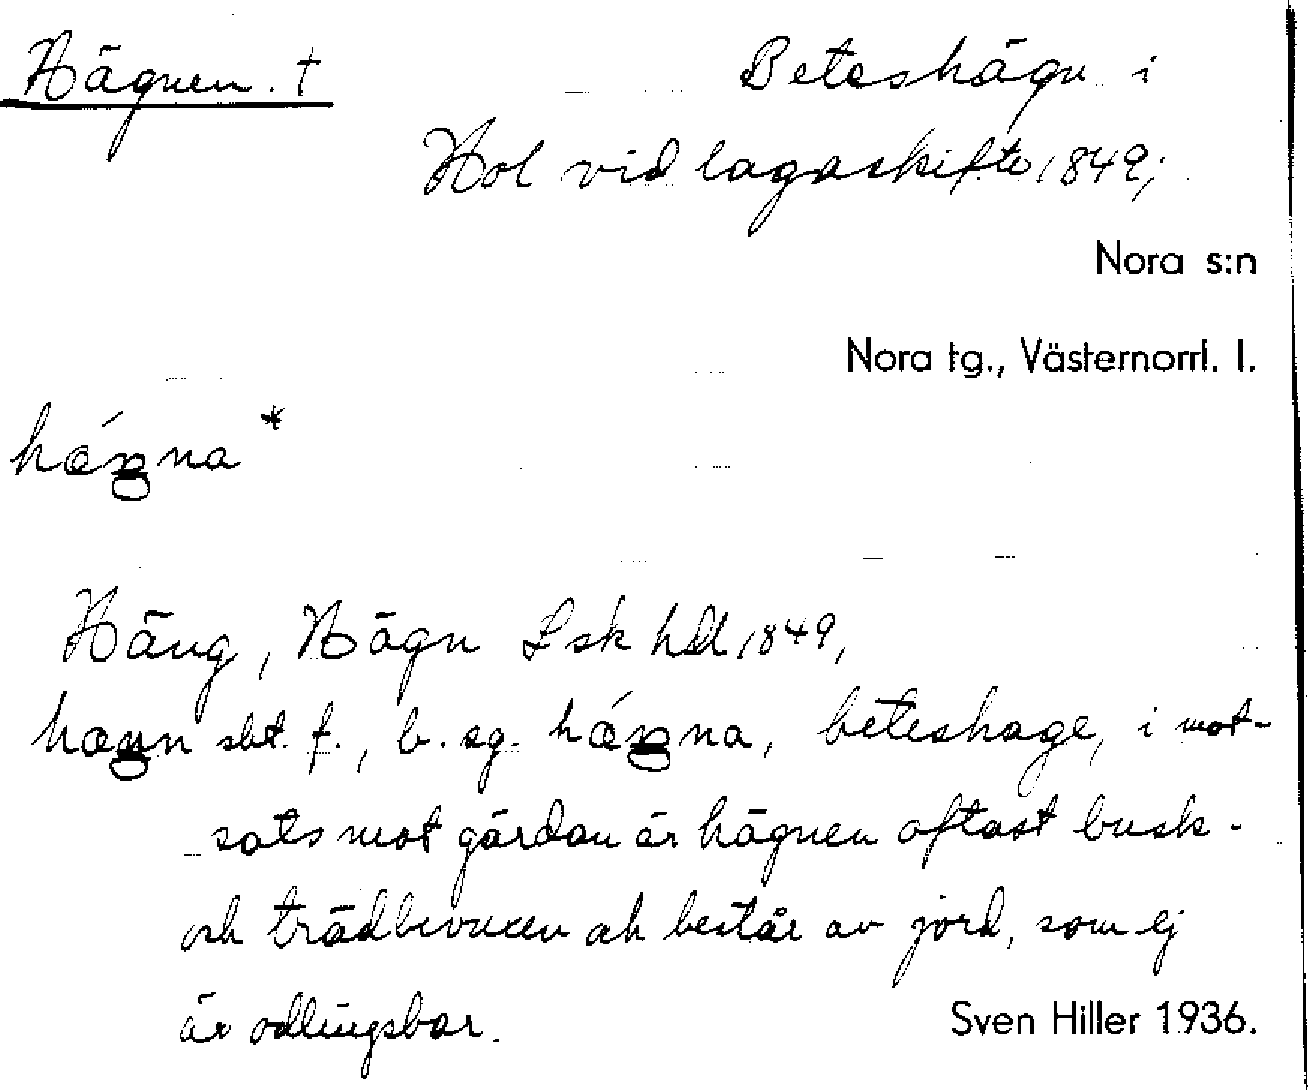 Hägnen. † Beteshägn i
Hol vid lagaskifte 1849;
Nora s:n
Nora tg., Västernorrl. l.
hǽŋna *
Häng, Hägn Lsk hdl 1849,
hæŋn sbt. f., b. sg. hǽŋna, beteshage, i mot-
sats mot gärdan är hägnen oftast busk-
och trädbevuxen och består av jord, som ej
är odlingsbar.
Sven Hiller 1936.